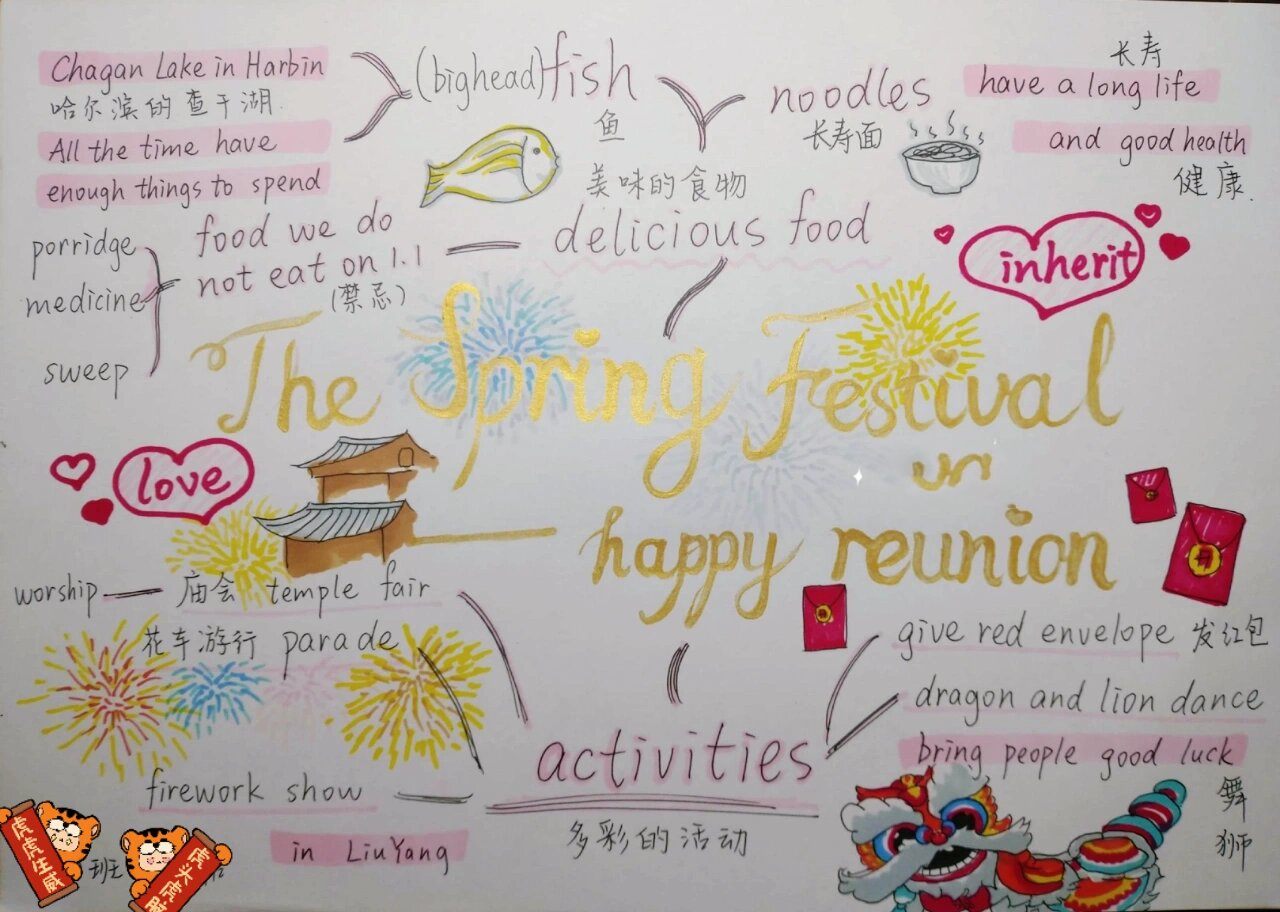 Chagan Lake in Harbin
哈尔滨的查干湖
All the time have
enough things to spend
(bighead)fish
鱼
noodles
长寿面
长寿
have a long life
and good health
健康.
美味的食物
delicious food
food we do
not eat on 1.1
(禁忌)
porridge
medicine
sweep
inherit
The Spring Festival
love
happy reunion
worship
庙会 temple fair
花车游行 parade
firework show
in LiuYang
activities
多彩的活动
give red envelope 发红包
dragon and lion dance
bring people good luck
舞狮
虎虎生威
班
虎头虎脑